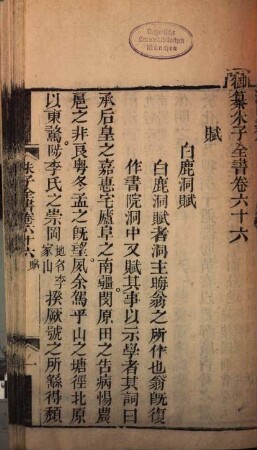 Bayerische
Staatsbibliothek
München
御纂朱子全書卷六十六
賦
白鹿洞賦
白鹿洞賦者洞主晦翁之所作也翁既復
作書院洞中又賦其事以示學者其詞曰
承后皇之嘉惠宅廬阜之南疆閔原田之告病惕農
扈之非良粤冬孟之既望夙余駕乎山之塘徑北原
以東騖陟李氏之崇岡地名李家山揆厥號之所繇得頹
朱子全書卷六十六 賦
一